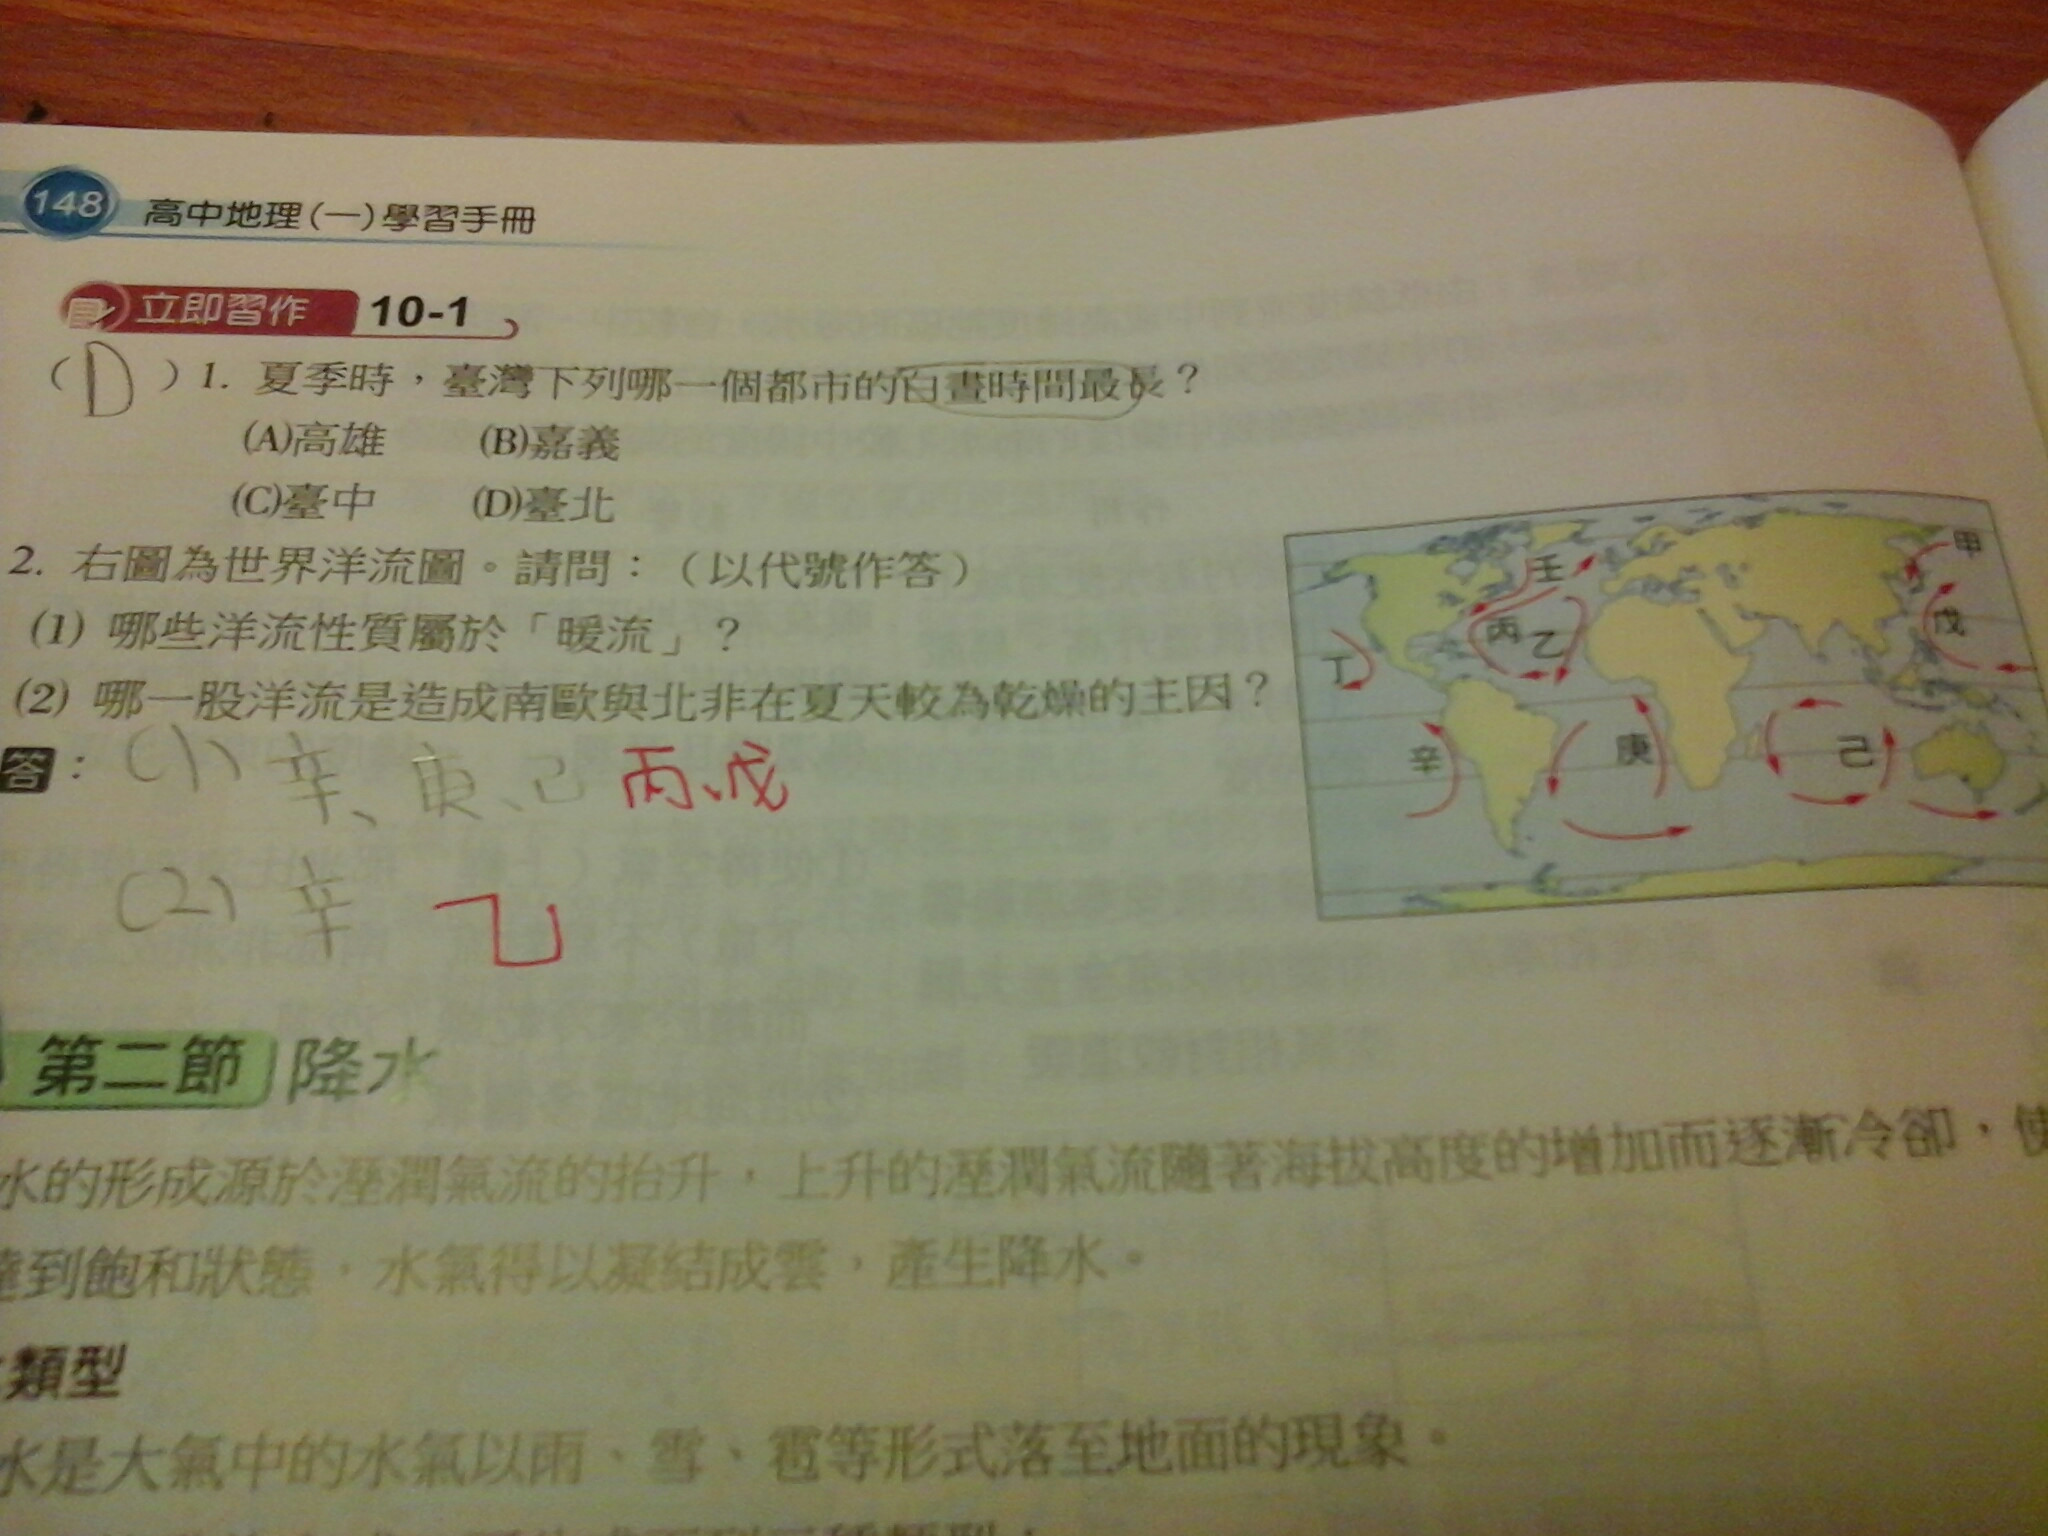 148 高中地理(一)學習手冊
立即習作 10-1
(D)1. 夏季時，臺灣下列哪一個都市的白晝時間最長？
(A)高雄 (B)嘉義
(C)臺中 (D)臺北
2. 右圖為世界洋流圖。請問：（以代號作答）
(1) 哪些洋流性質屬於「暖流」？
(2) 哪一股洋流是造成南歐與北非在夏天較為乾燥的主因？
答：(1) 辛、庚、己 丙、戊
(2) 辛 乙
甲
壬
戊
丙 乙
丁
辛 庚 己
第二節 降水
水的形成源於溼潤氣流的抬升，上升的溼潤氣流隨著海拔高度的增加而逐漸冷卻，使
達到飽和狀態，水氣得以凝結成雲，產生降水。
類型
水是大氣中的水氣以雨、雪、雹等形式落至地面的現象。